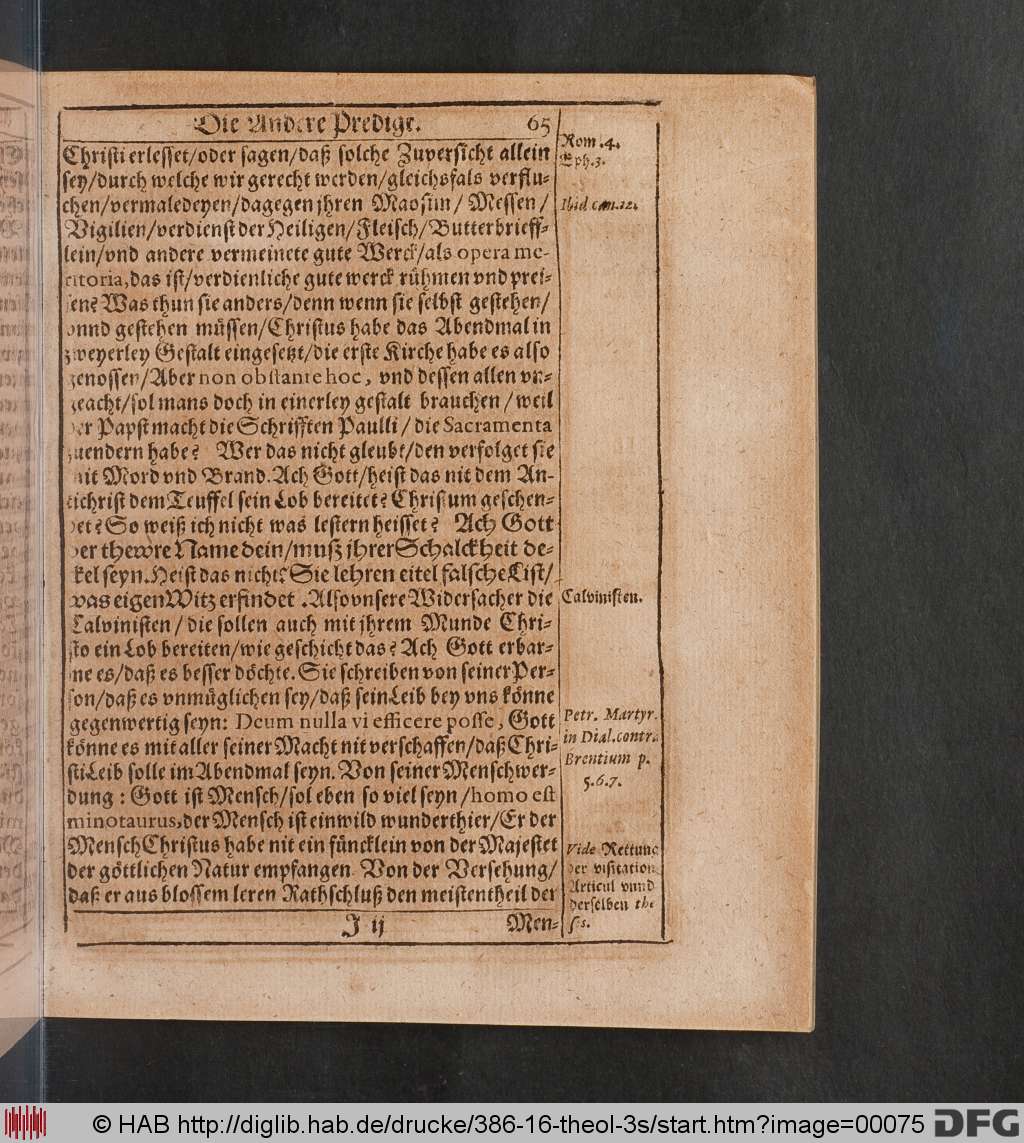 Die Andere Predigt. 65
Christi erlesset/oder sagen/daß solche Zuversicht allein
sey/durch welche wir gerecht werden/gleichsfals verflu-
chen/vermaledeyen/dagegen jhren Maosim/ Messen/
Vigilien/verdienst der Heiligen/Fleisch/Butterbrieff-
lein/vnd andere vermeinete gute Werck/als opera me-
ritoria, das ist/verdienliche gute werck rühmen vnd prei-
sen? Was thun sie anders/denn wenn sie selbst gestehen/
vnnd gestehen müssen/Christus habe das Abendmal in
zweyerley Gestalt eingesetzt/die erste Kirche habe es also
genossen/Aber non obstante hoc, vnd dessen allen vn-
geacht/sol mans doch in einerley gestalt brauchen/weil
der Papst macht die Schrifften Paulli/ die Sacramenta
zuendern habe? Wer das nicht gleubt/den verfolget sie
mit Mord vnd Brand. Ach Gott/heist das nit dem An-
tichrist dem Teuffel sein Lob bereitet? Christum geschen-
det? So weiß ich nicht was lestern heisset? Ach Gott
der thewre Name dein/muß jhrer Schalckheit de-
ckel seyn. Heist das nicht? Sie lehren eitel falsche List/
was eigen Witz erfindet. Also vnsere Widersacher die
Calvinisten/ die sollen auch mit jhrem Munde Chri-
sto ein Lob bereiten/wie geschicht das? Ach Gott erbar-
me es/daß es besser döchte. Sie schreiben von seiner Per-
son/daß es vnmüglichen sey/daß sein Leib bey vns könne
gegenwertig seyn: Deum nulla vi efficere posse, Gott
könne es mit aller seiner Macht nit verschaffen/daß Chri-
sti Leib solle im Abendmal seyn. Von seiner Menschwer-
dung: Gott ist Mensch/sol eben so viel seyn/homo est
minotaurus, der Mensch ist ein wild wunderthier/Er der
Mensch Christus habe nit ein füncklein von der Majestet
der göttlichen Natur empfangen. Von der Versehung/
daß er aus blossem leren Rathschluß den meistentheil der
J ij Men-
Rom. 4.
Eph. 3.
Ibid can. 12.
Calvinisten.
Petr. Martyr.
in Dial. contr.
Brentium p.
5.6.7.
Vide Rettung
der visitation
Articul vnnd
derselben the
ses.
© HAB http://diglib.hab.de/drucke/386-16-theol-3s/start.htm?image=00075
DFG